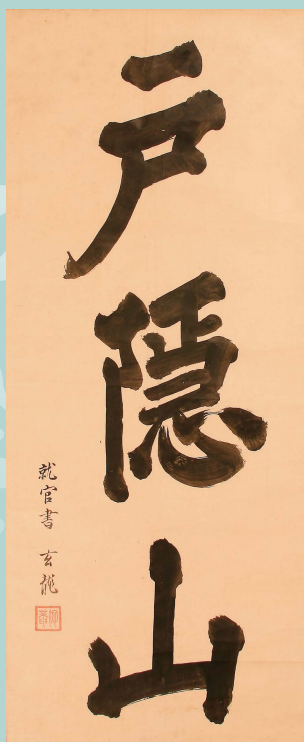 戸隠山
就官書 玄龍